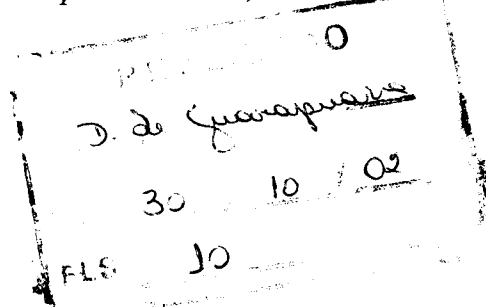 O
D. de Guarapuava
30 10 / 02
FLS. 10